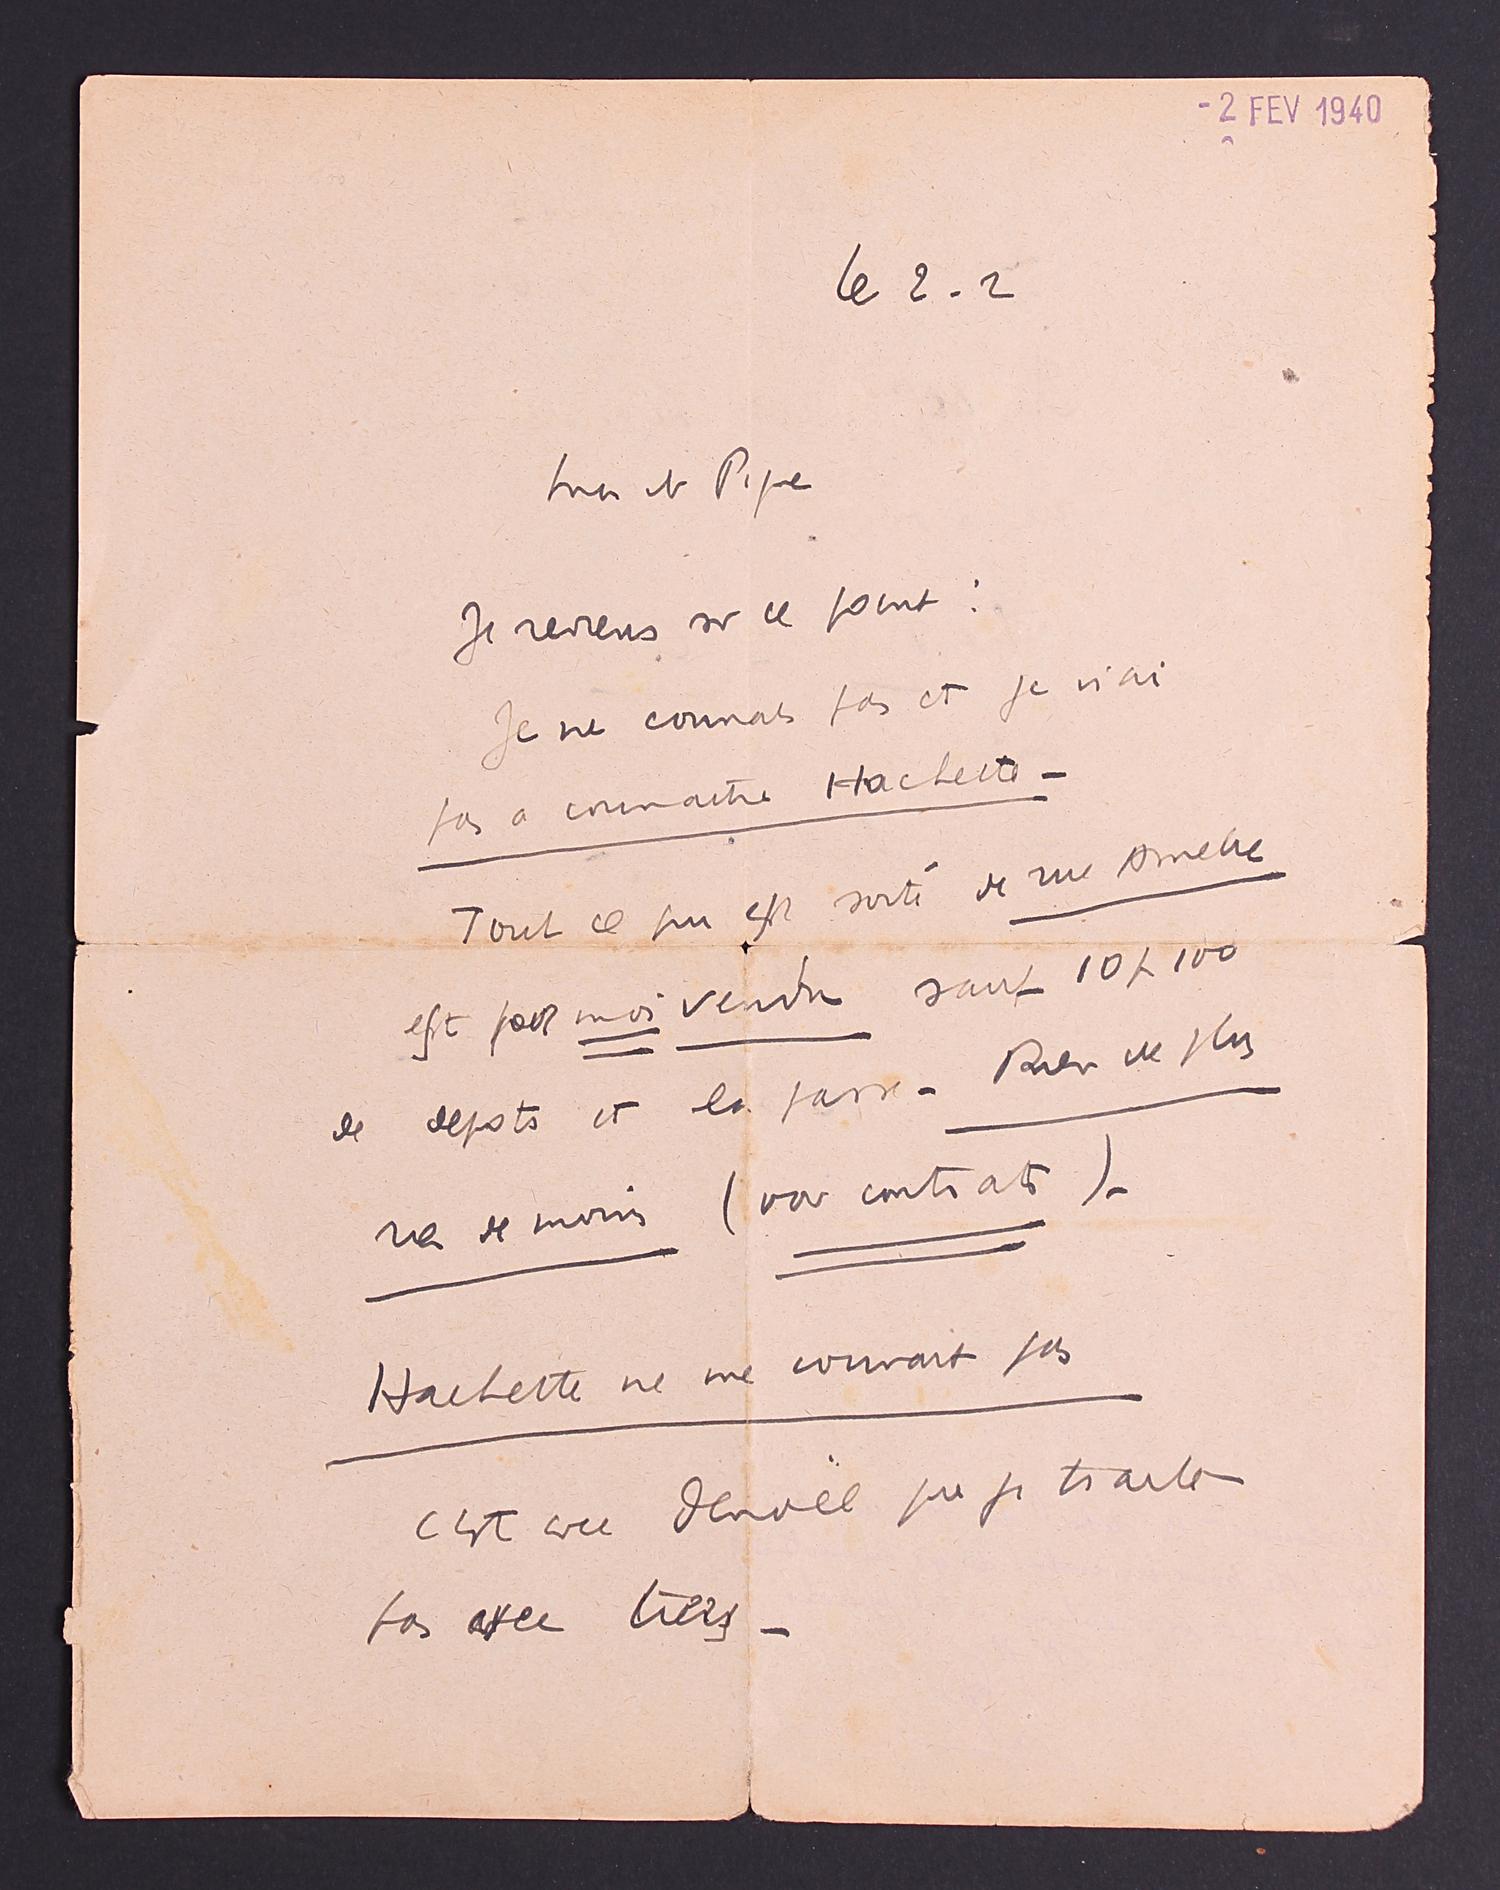 -2 FEV 1940
le 2.2
Je reviens sr ce point :
Je ne connais pas et je n'ai
pas a connaitre Hachette -
Tout ce qui est sorti de rue Amelie
est pour moi vendu sauf 10 p 100
de depots et la passe - Rien de plus
rien de moins (voir contrats) -
Hachette ne me connait pas
C'est avec Denoël que je traite
pas avec tiers -